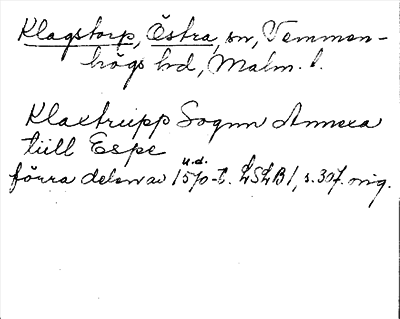 Klagstorp, Östra, sn, Vemmen-
högs hd, Malm. l.
Klaxtrupp Sognn Annexa
tiill Espe
u.d.
förra delen av 1570-t. LSLB 1, s. 307. orig.